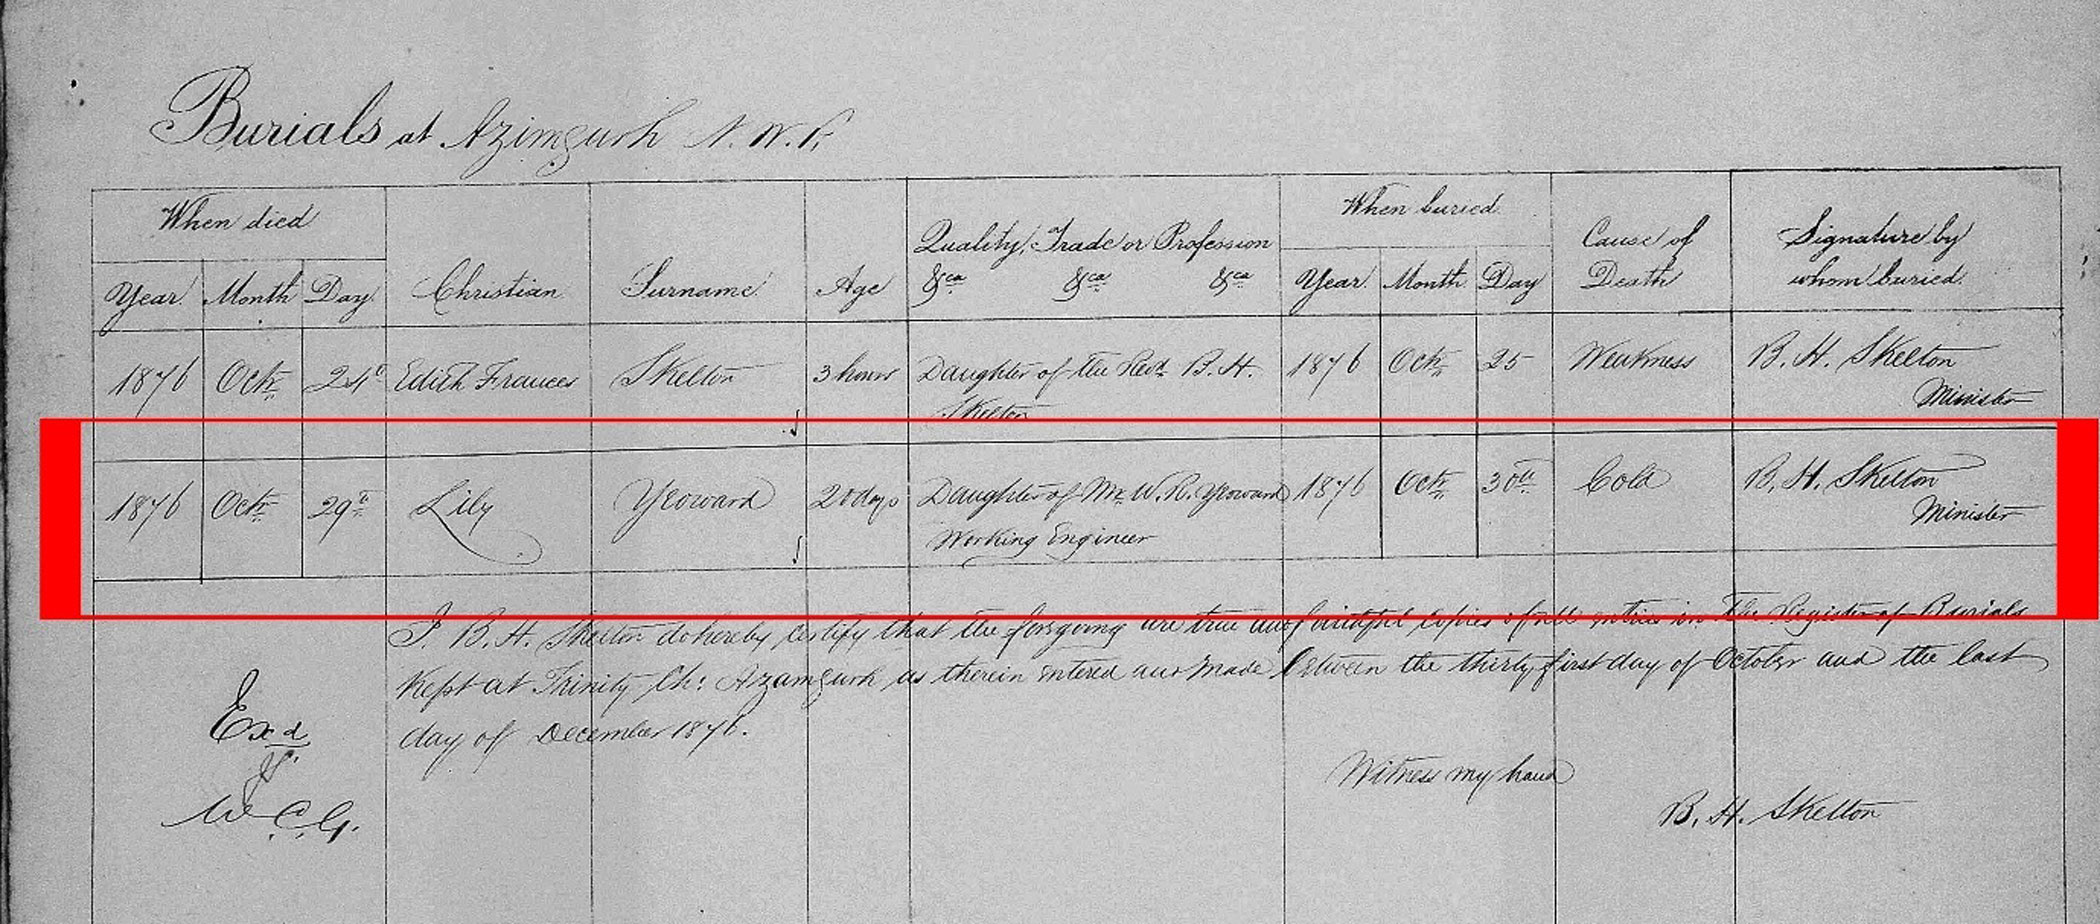 Burials at Azimgurh N.W.P.
When died When buried
Year Month Day Christian Surname Age Quality, Trade or Profession &ca &ca &ca Year Month Day Cause of Death Signature by whom buried
1876 Oct. 24th Edith Frances Skelton 3 hours Daughter of the Revd. B. H. 1876 Oct. 25 Weakness B. H. Skelton
Skelton Minister
1876 Oct. 29th Lily Yeoward 20 days Daughter of Mr. W. R. Yeoward 1876 Oct. 30th Cold B. H. Skelton
Working Engineer Minister
I. B. H. Skelton do hereby certify that the foregoing are true and faithful copies of all entries in the Register of Burials
Kept at Trinity Ch: Azamgurh as therein entered and made between the thirty first day of October and the last
day of December 1876.
Exd
Witness my hand
W.C.G.
B. H. Skelton